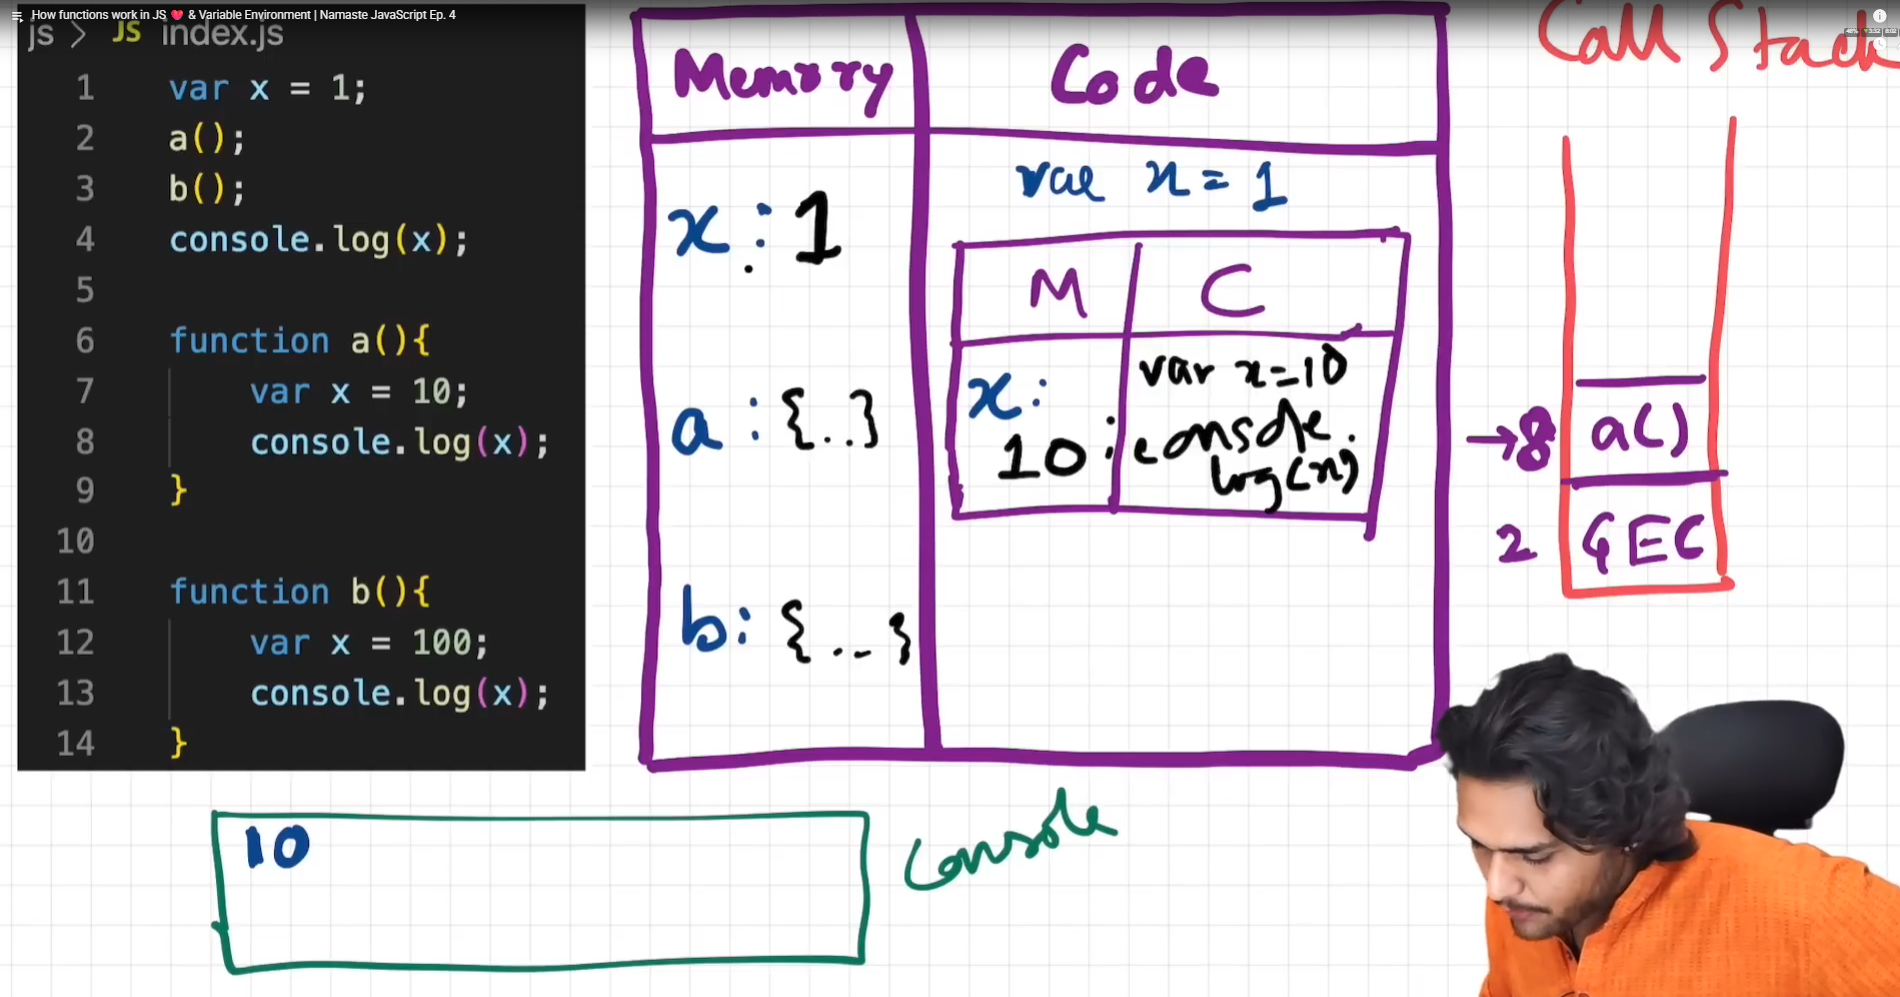 How functions work in JS ❤️ & Variable Environment | Namaste JavaScript Ep. 4
js > JS index.js
1 var x = 1;
2 a();
3 b();
4 console.log(x);
5
6 function a(){
7 var x = 10;
8 console.log(x);
9 }
10
11 function b(){
12 var x = 100;
13 console.log(x);
14 }
Memory Code
x : 1
a : {..}
b : {..}
var x = 1
M C
x :
10
var x = 10
console.
log(x);
Call Stack
→8 a()
2 GEC
10
Console